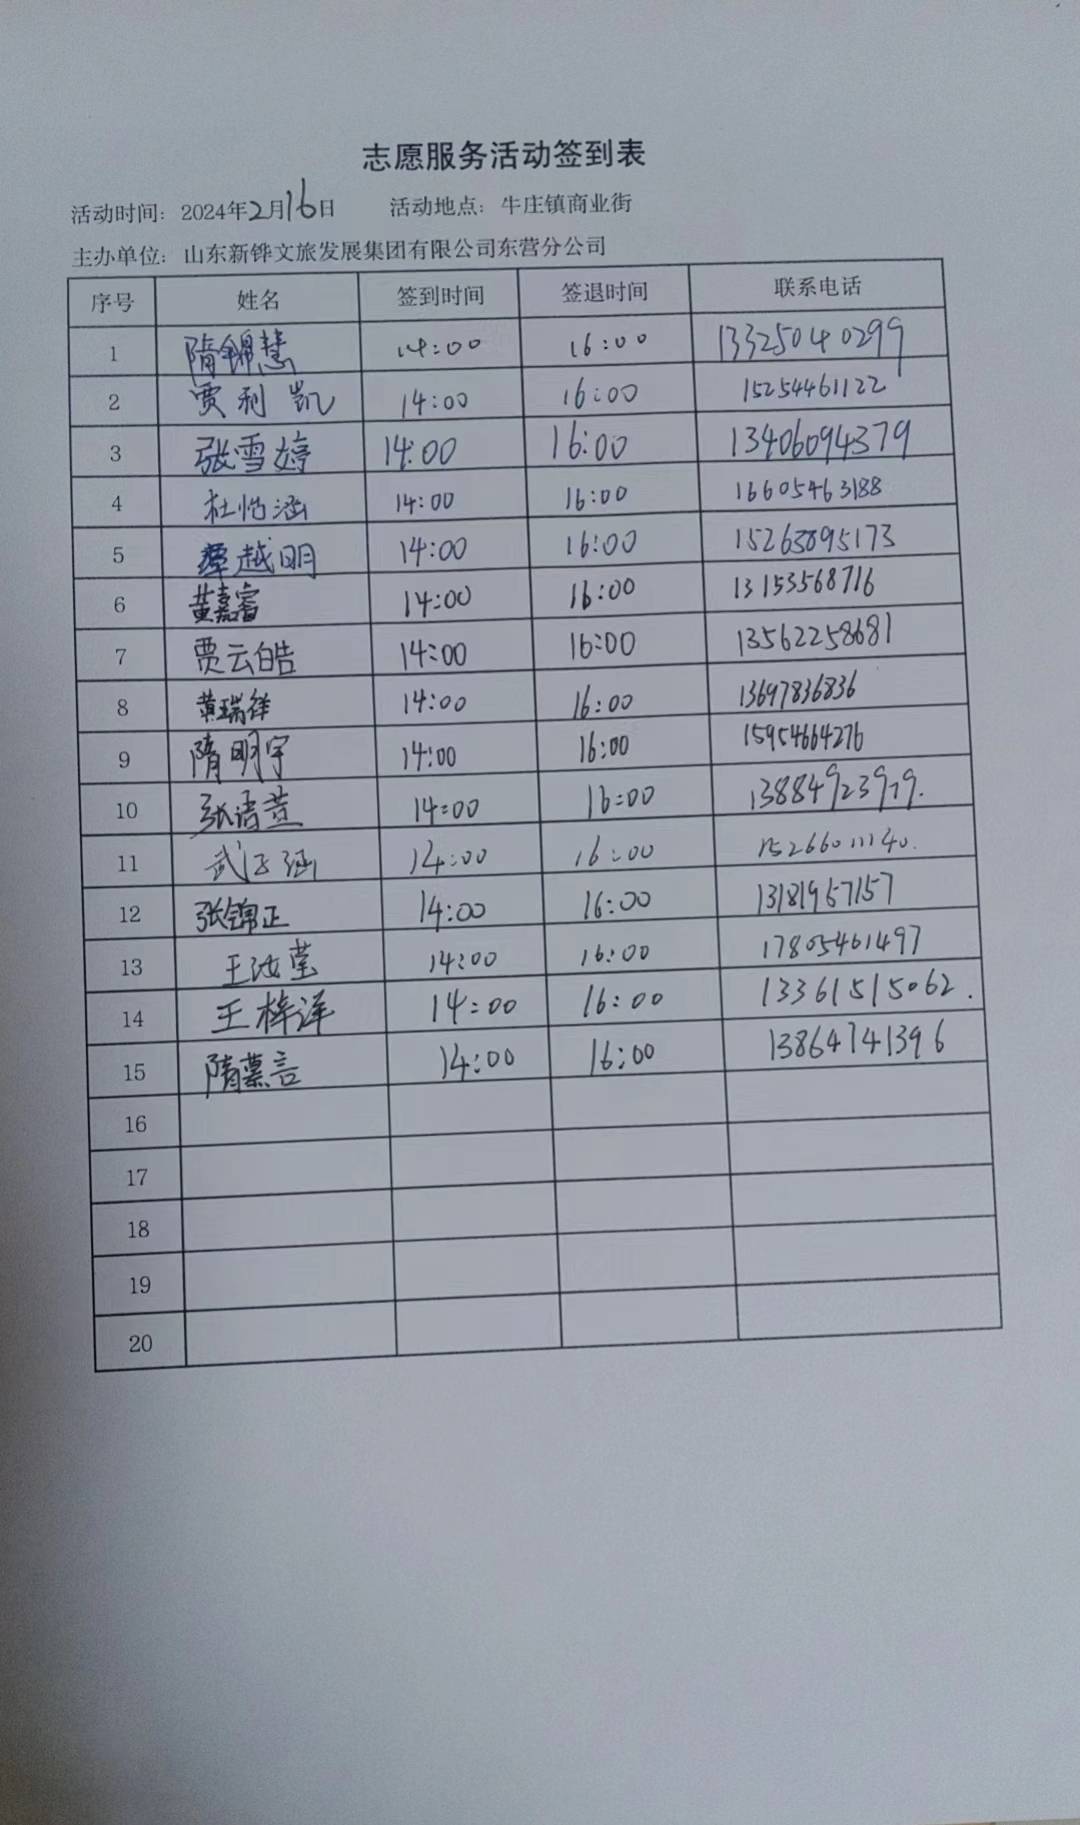 志愿服务活动签到表
活动时间：2024年2月16日 活动地点：牛庄镇商业街
主办单位：山东新铧文旅发展集团有限公司东营分公司
序号 姓名 签到时间 签退时间 联系电话
1 隋锦慧 14:00 16:00 13325040299
2 贾利凯 14:00 16:00 15254461122
3 张雪婷 14:00 16:00 13406094379
4 杜怡涵 14:00 16:00 16605463188
5 覃越明 14:00 16:00 15263895173
6 黄嘉睿 14:00 16:00 13153568716
7 贾云皓 14:00 16:00 13562258681
8 黄瑞祥 14:00 16:00 13697836836
9 隋明宇 14:00 16:00 15954664276
10 张语萱 14:00 16:00 13884923979.
11 武子涵 14:00 16:00 15266011140.
12 张锦正 14:00 16:00 13181957157
13 王汝莹 14:00 16:00 17805461497
14 王梓洋 14:00 16:00 13361515062.
15 隋慕言 14:00 16:00 13864741396
16
17
18
19
20